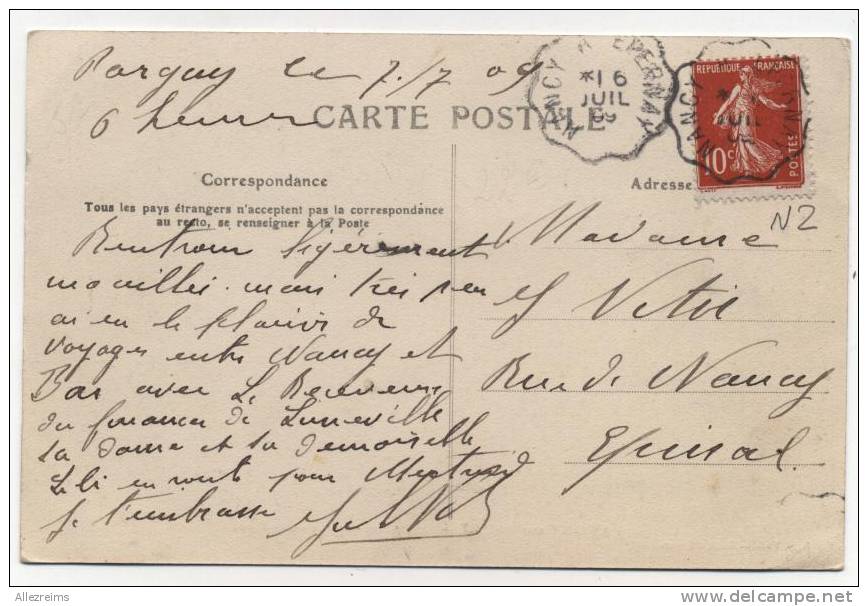 Pargny le 7/7 09
6 heures
CARTE POSTALE
NANCY A EPERNAY
*16
JUIL
09
REPUBLIQUE FRANÇAISE
10c
POSTES
NANCY
JUIL
Correspondance
Adresse
Tous les pays étrangers n'acceptent pas la correspondance
au recto, se renseigner à la Poste
N2
Rentrons légèrement
mouillés. mais très peu
ai eu le plaisir de
voyager entre Nancy et
Bar avec Le Receveur
des finances de Luneville
sa dame et sa demoiselle
en route pour
Je t'embrasse
Madame
Rue de Nancy
Epinal.
Allezreims
www.delcampe.net